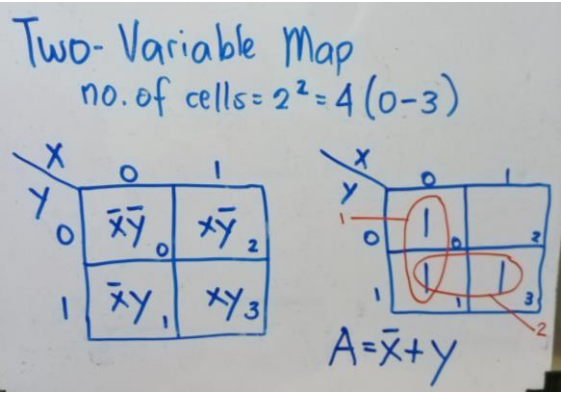 Two-Variable Map
no. of cells = 2² = 4 (0-3)
X
Y
0 1
0 x̄ȳ 0 xȳ 2
1 x̄y 1 xy 3
X
Y
0 1
1
0 1 0 2
1 1 1 1 3
2
A = x̄ + y